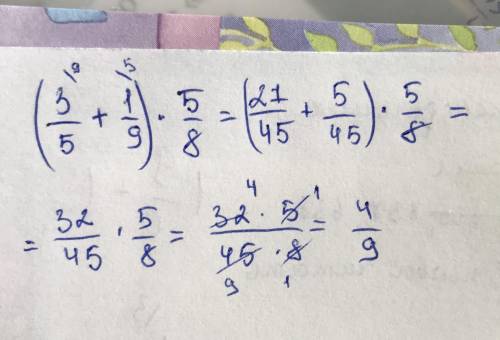 (3/5 + 1/9) · 5/8 = (27/45 + 5/45) · 5/8 =
= 32/45 · 5/8 = 32 · 5/45 · 8 = 4/9